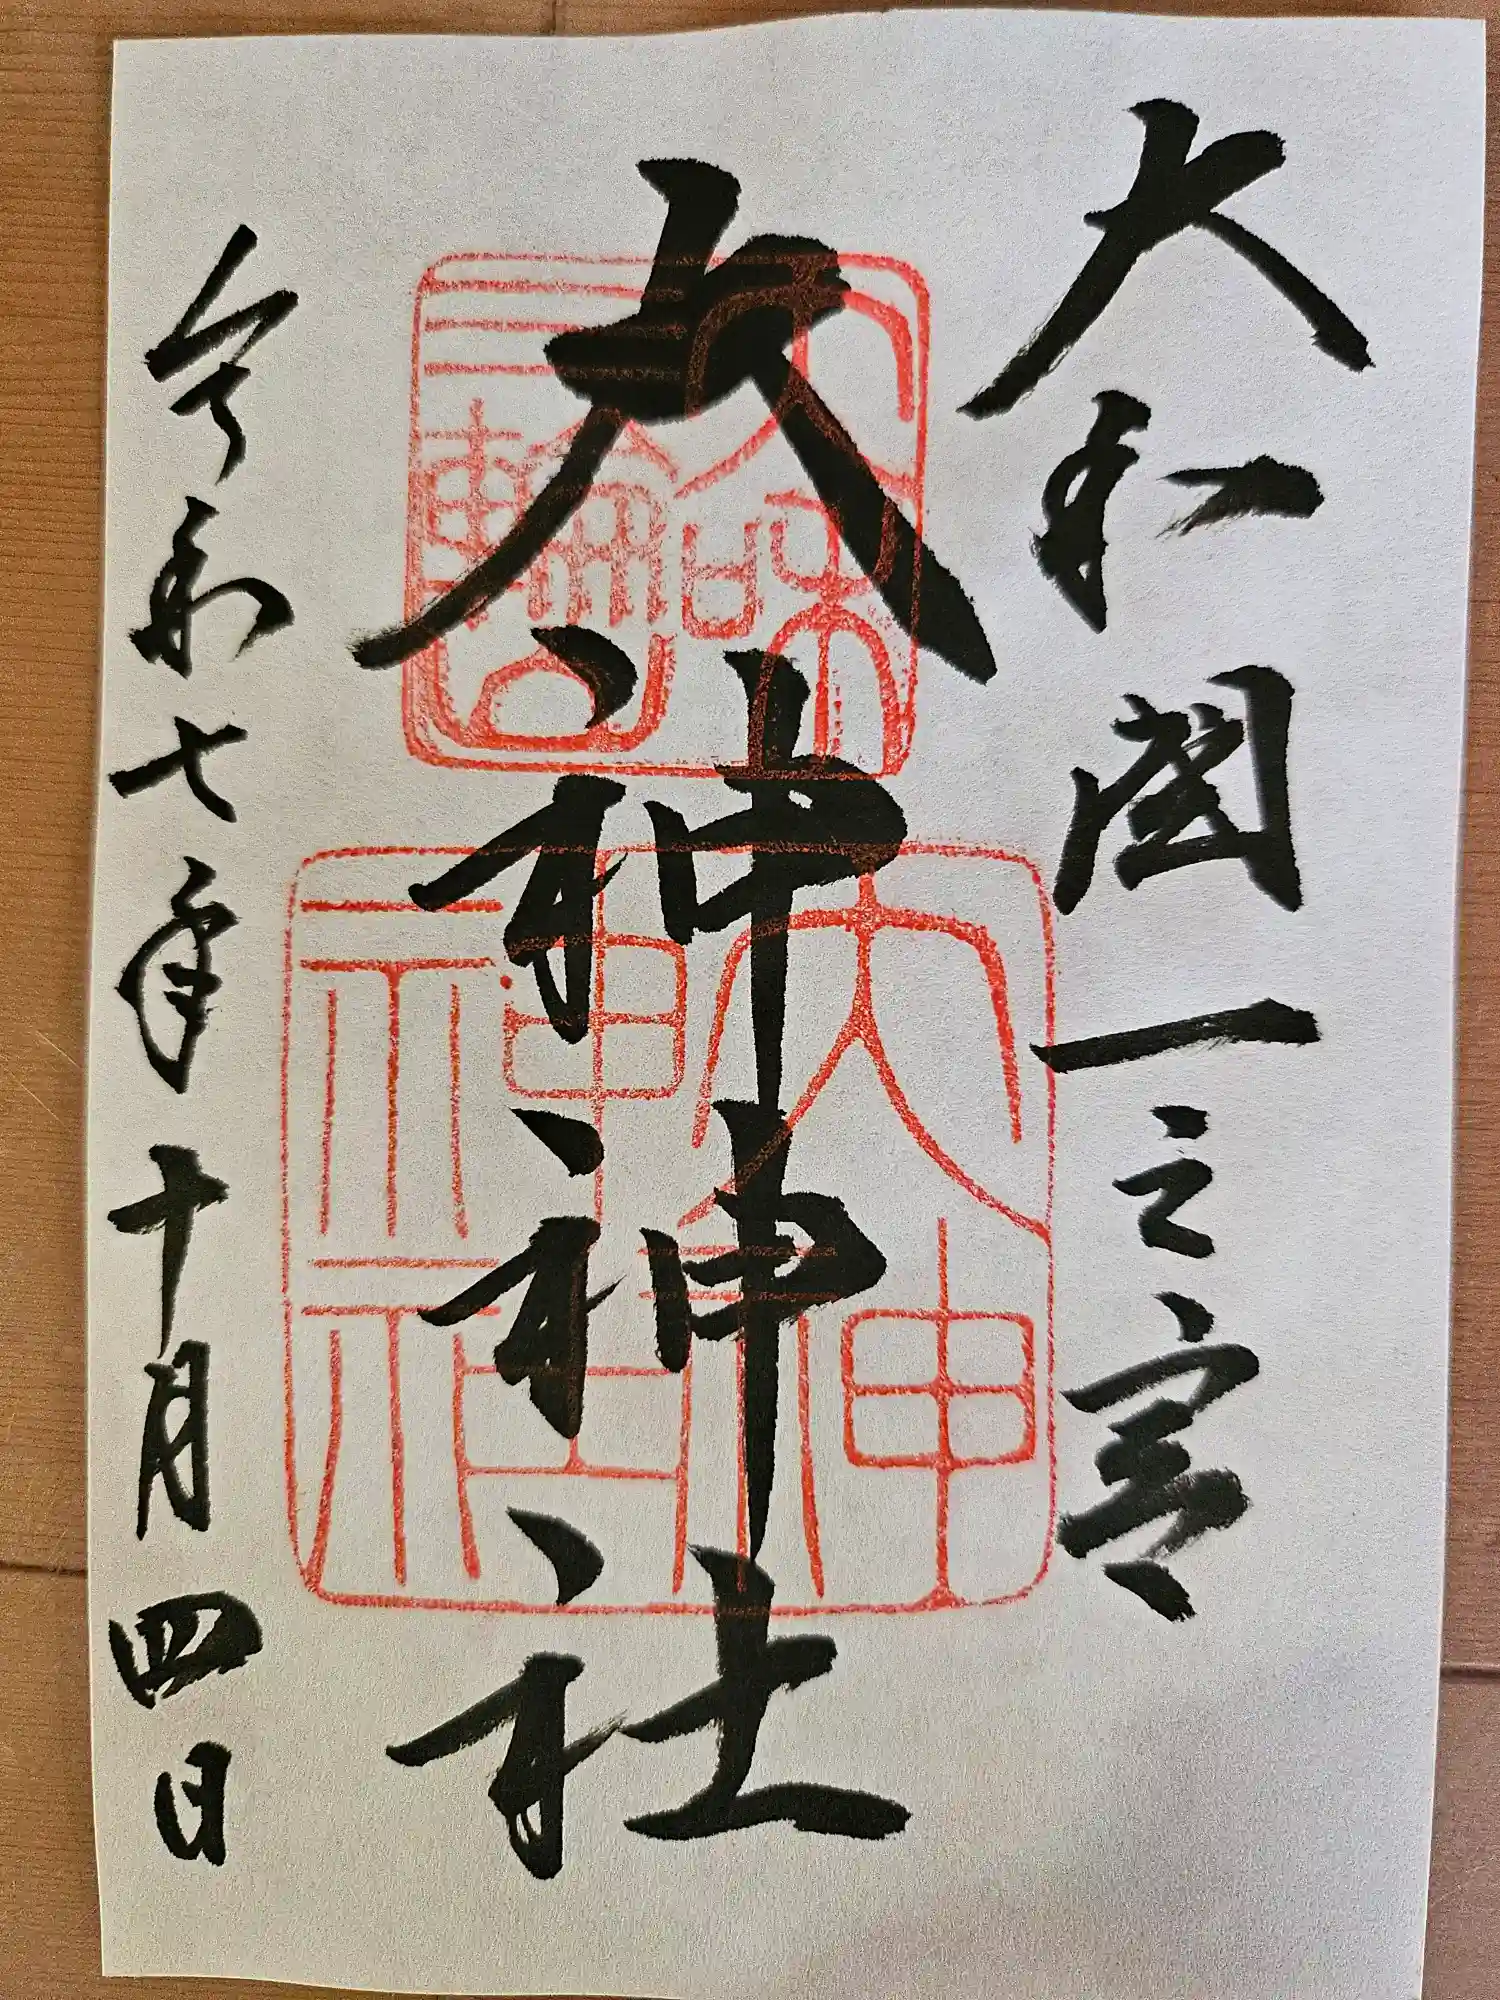 大和国一之宮
大神神社
令和七年十月四日
大和
三輪
大神
神社